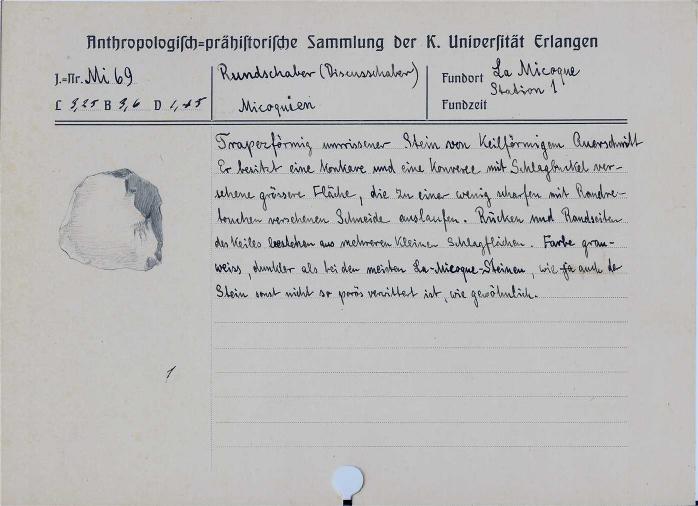 Anthropologisch=prähistorische Sammlung der K. Universität Erlangen
J.=Nr. Mi 69
Rundschaber (Discusschaber)
Micoquien
Fundort La Micoque
Station 1
Fundzeit
L 3,25 B 3,6 D 1,45
Trapezförmig umrissener Stein von Keilförmigem Querschnitt
Er besitzt eine konkave und eine konvexe mit Schlagbuckel ver-
sehene grössere Fläche, die zu einer wenig scharfen mit Randre-
touchen versehenen Schneide auslaufen. Rücken und Randseiten
des Keiles bestehen aus mehreren kleinen Schlagflächen. Farbe grau-
weiss, dunkler als bei den meisten La-Micoque-Steinen, wie ja auch de
Stein sonst nicht so porös verwittert ist, wie gewöhnlich.
1